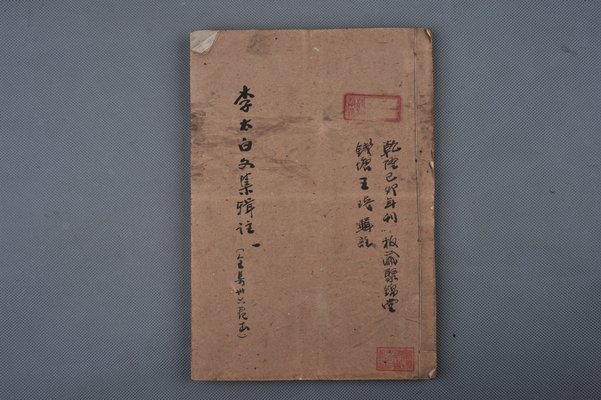 乾隆己卯年刊 板藏聚錦堂
錢塘王琦輯註
李太白文集輯註 一
(全書卅六卷